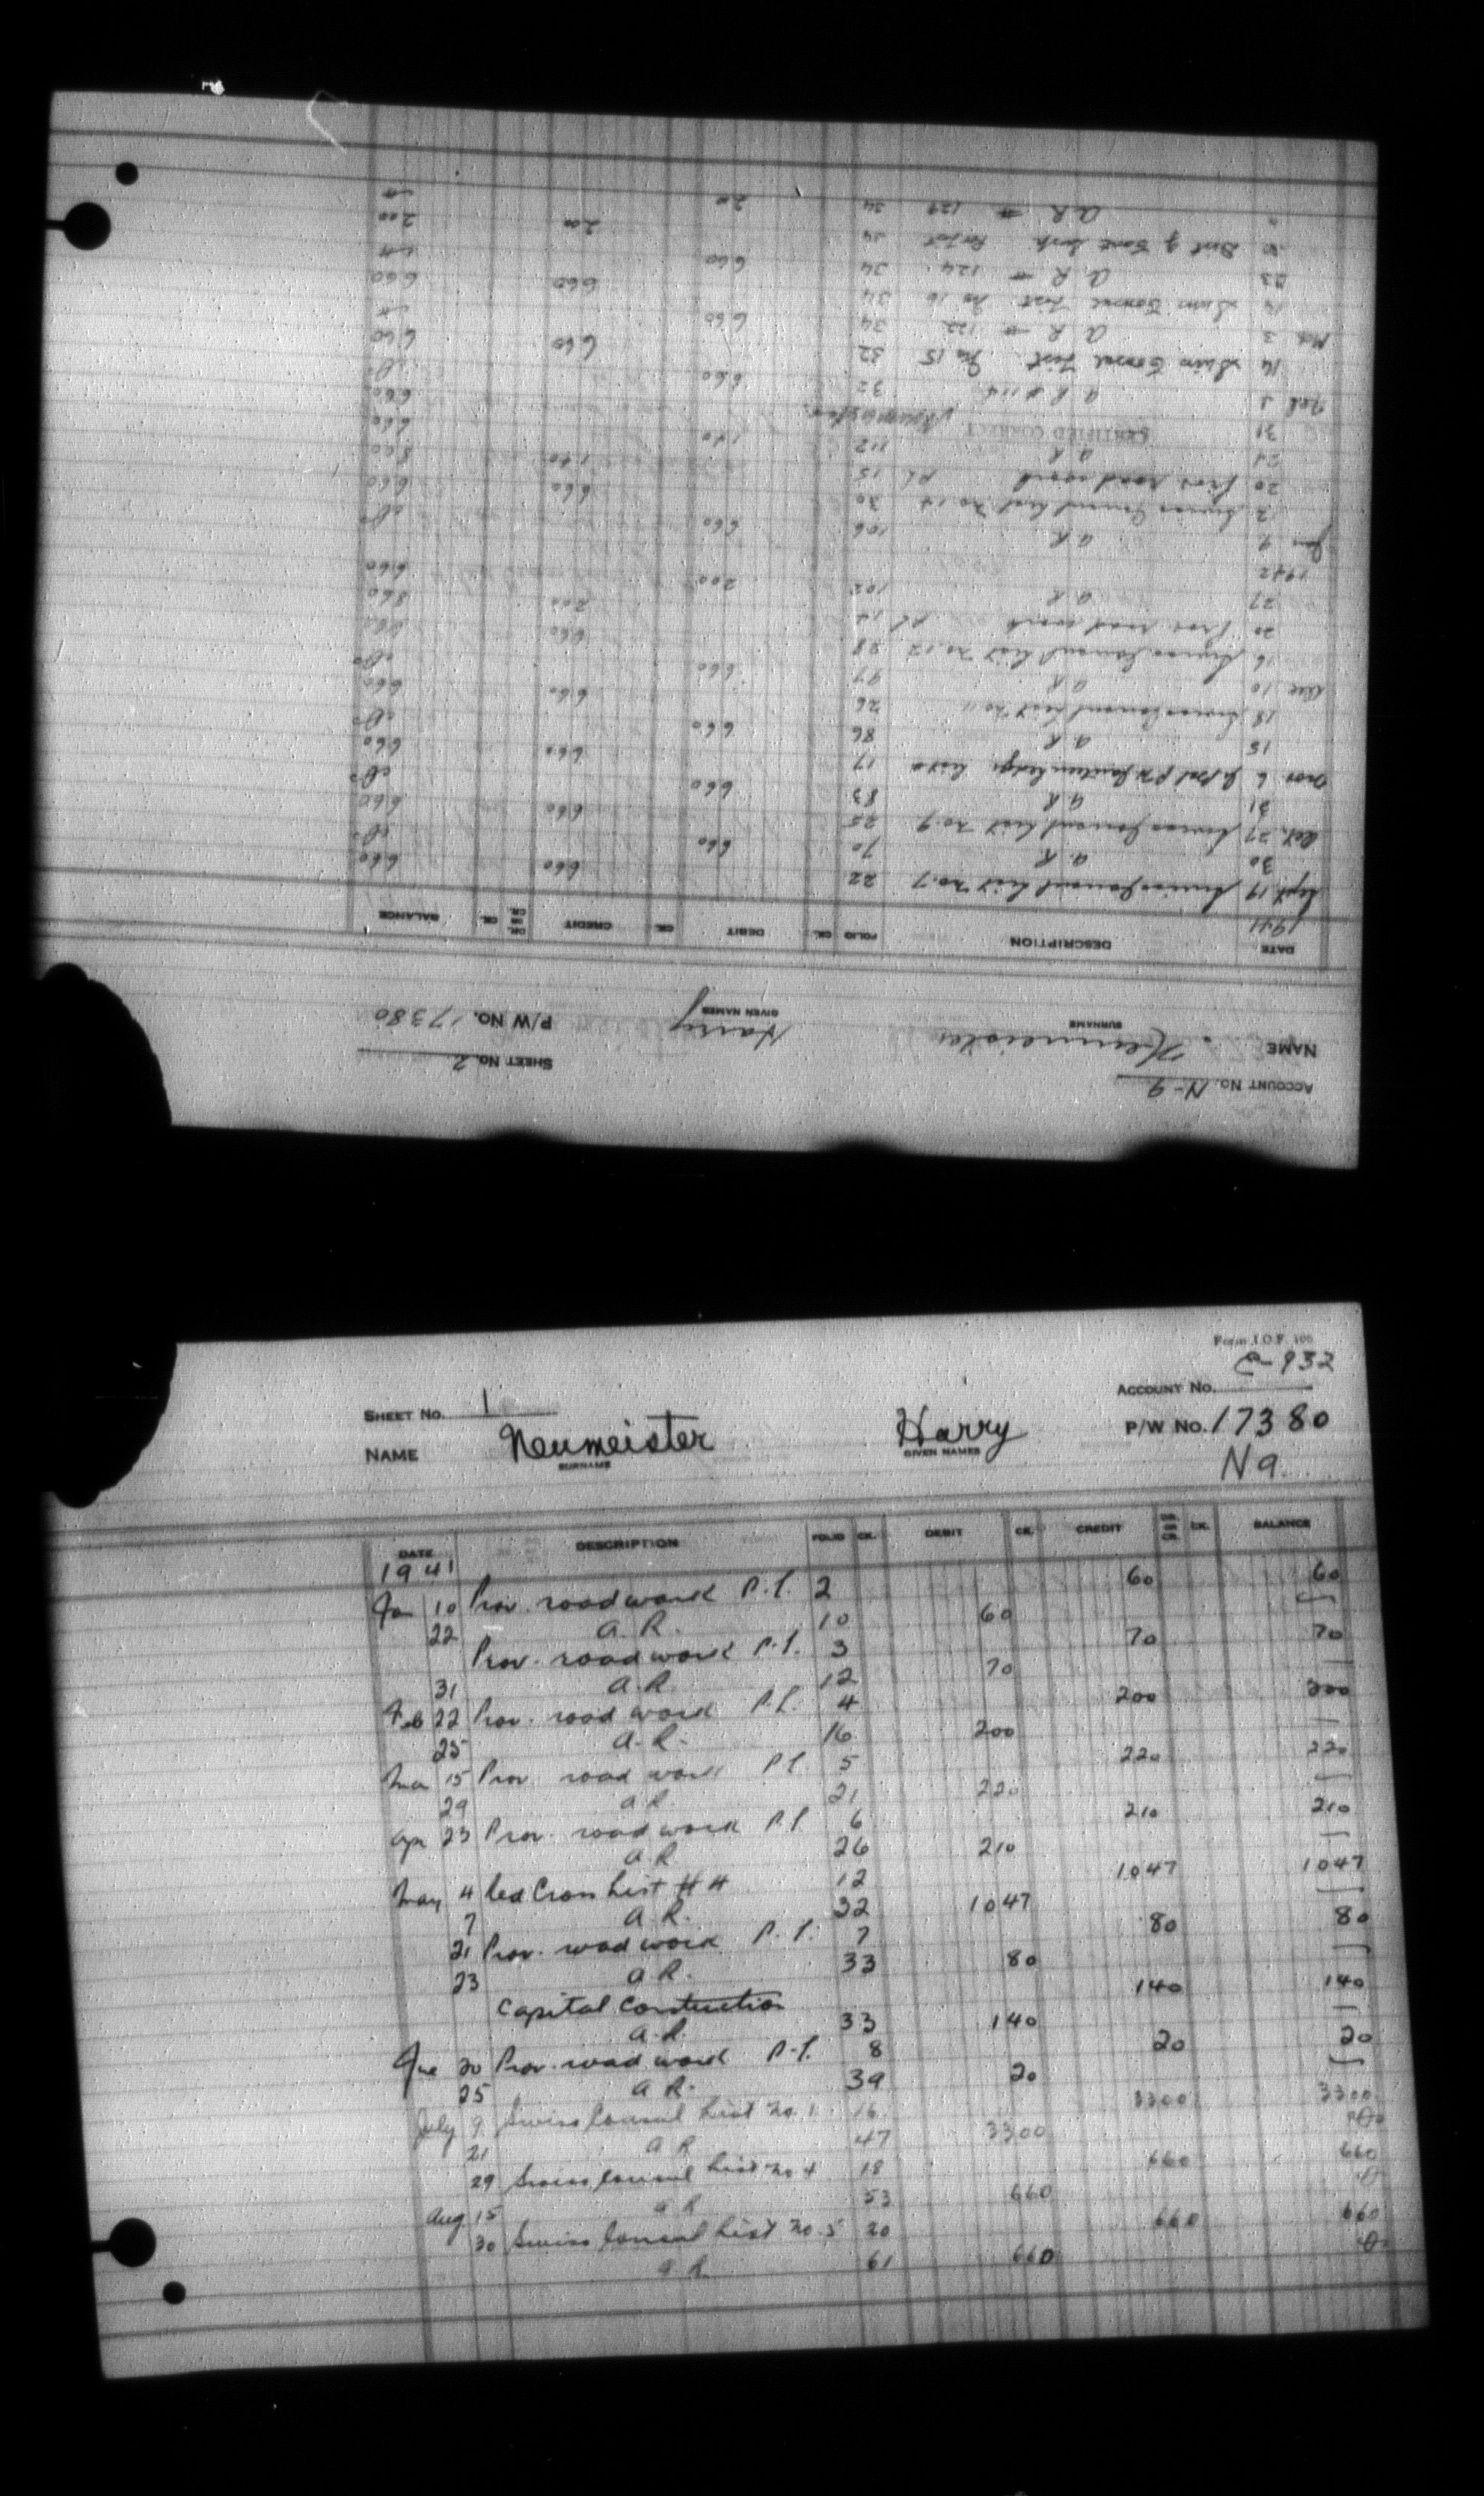 Form I.O.F. 106
C-932
ACCOUNT No.
SHEET No. 1
P/W No. 17380
NAME Neumeister Harry
SURNAME GIVEN NAMES
N 9
DATE DESCRIPTION FOLIO CK. DEBIT CK. CREDIT DR. OR CR. CK. BALANCE
1941
Jan 10 Prov. road work P.L. 2 60 60
22 A.R. 10 60
Prov. road work P.L. 3 70 70
31 A.R. 12 70
Feb 22 Prov. road work P.L. 4 200 200
25 A.R. 16 200
Mar 15 Prov. road work P.L. 5 220 220
29 A.R. 21 220
Apr 23 Prov. road work P.L. 6 210 210
A.R. 26 210
May 4 Red Cross List #4 12 1047 1047
7 A.R. 32 1047
21 Prov. road work P.L. 7 80 80
23 A.R. 33 80
Capital Constuction 140 140
A.R. 33 140
Jue 20 Prov. road work P.L. 8 20 20
25 A.R. 39 20
July 9 Swiss Consul List No. 1 16 3300 3300
21 A R 47 3300
29 Swiss Consul List No 4 18 660 660
Aug 15 A R 53 660
30 Swiss Consul List No. 5 20 660 660
A R 61 660
ACCOUNT No. N-9
SHEET No. 2
NAME Neumeister Harry P/W No. 17380
SURNAME GIVEN NAMES
DATE DESCRIPTION FOLIO CK. DEBIT CK. CREDIT DR. OR CR. CK. BALANCE
1941
Sept 19 Swiss Consul List No. 7 22 660 660
30 A. R 70 660
Oct. 27 Swiss Consul List No. 9 25 660 660
31 A R 83 660
Nov 6 17 660 660
15 A R 86 660
18 Swiss Consul List No 11 26 660 660
Dec 10 A R 97 660
16 Swiss Consul List No. 12 28 660 660
20 Prov road work PL 12 200 860
27 A R 102 200 660
1942
Jan 9 A R 106 660
12 Swiss Consul List No 14 30 660 660
20 Prov road work PL 15 140 800
21 A R 112 140 660
31 CERTIFIED CORRECT Neumeister 660
Feb 3 A R # 114 32 660
14 Swiss Consul List No 15 32 660 660
Mch 3 A R # 122 34 660
14 Swiss Consul List No 16 34 660 660
23 A R # 124 34 660
34 200 200
A R # 129 34 200